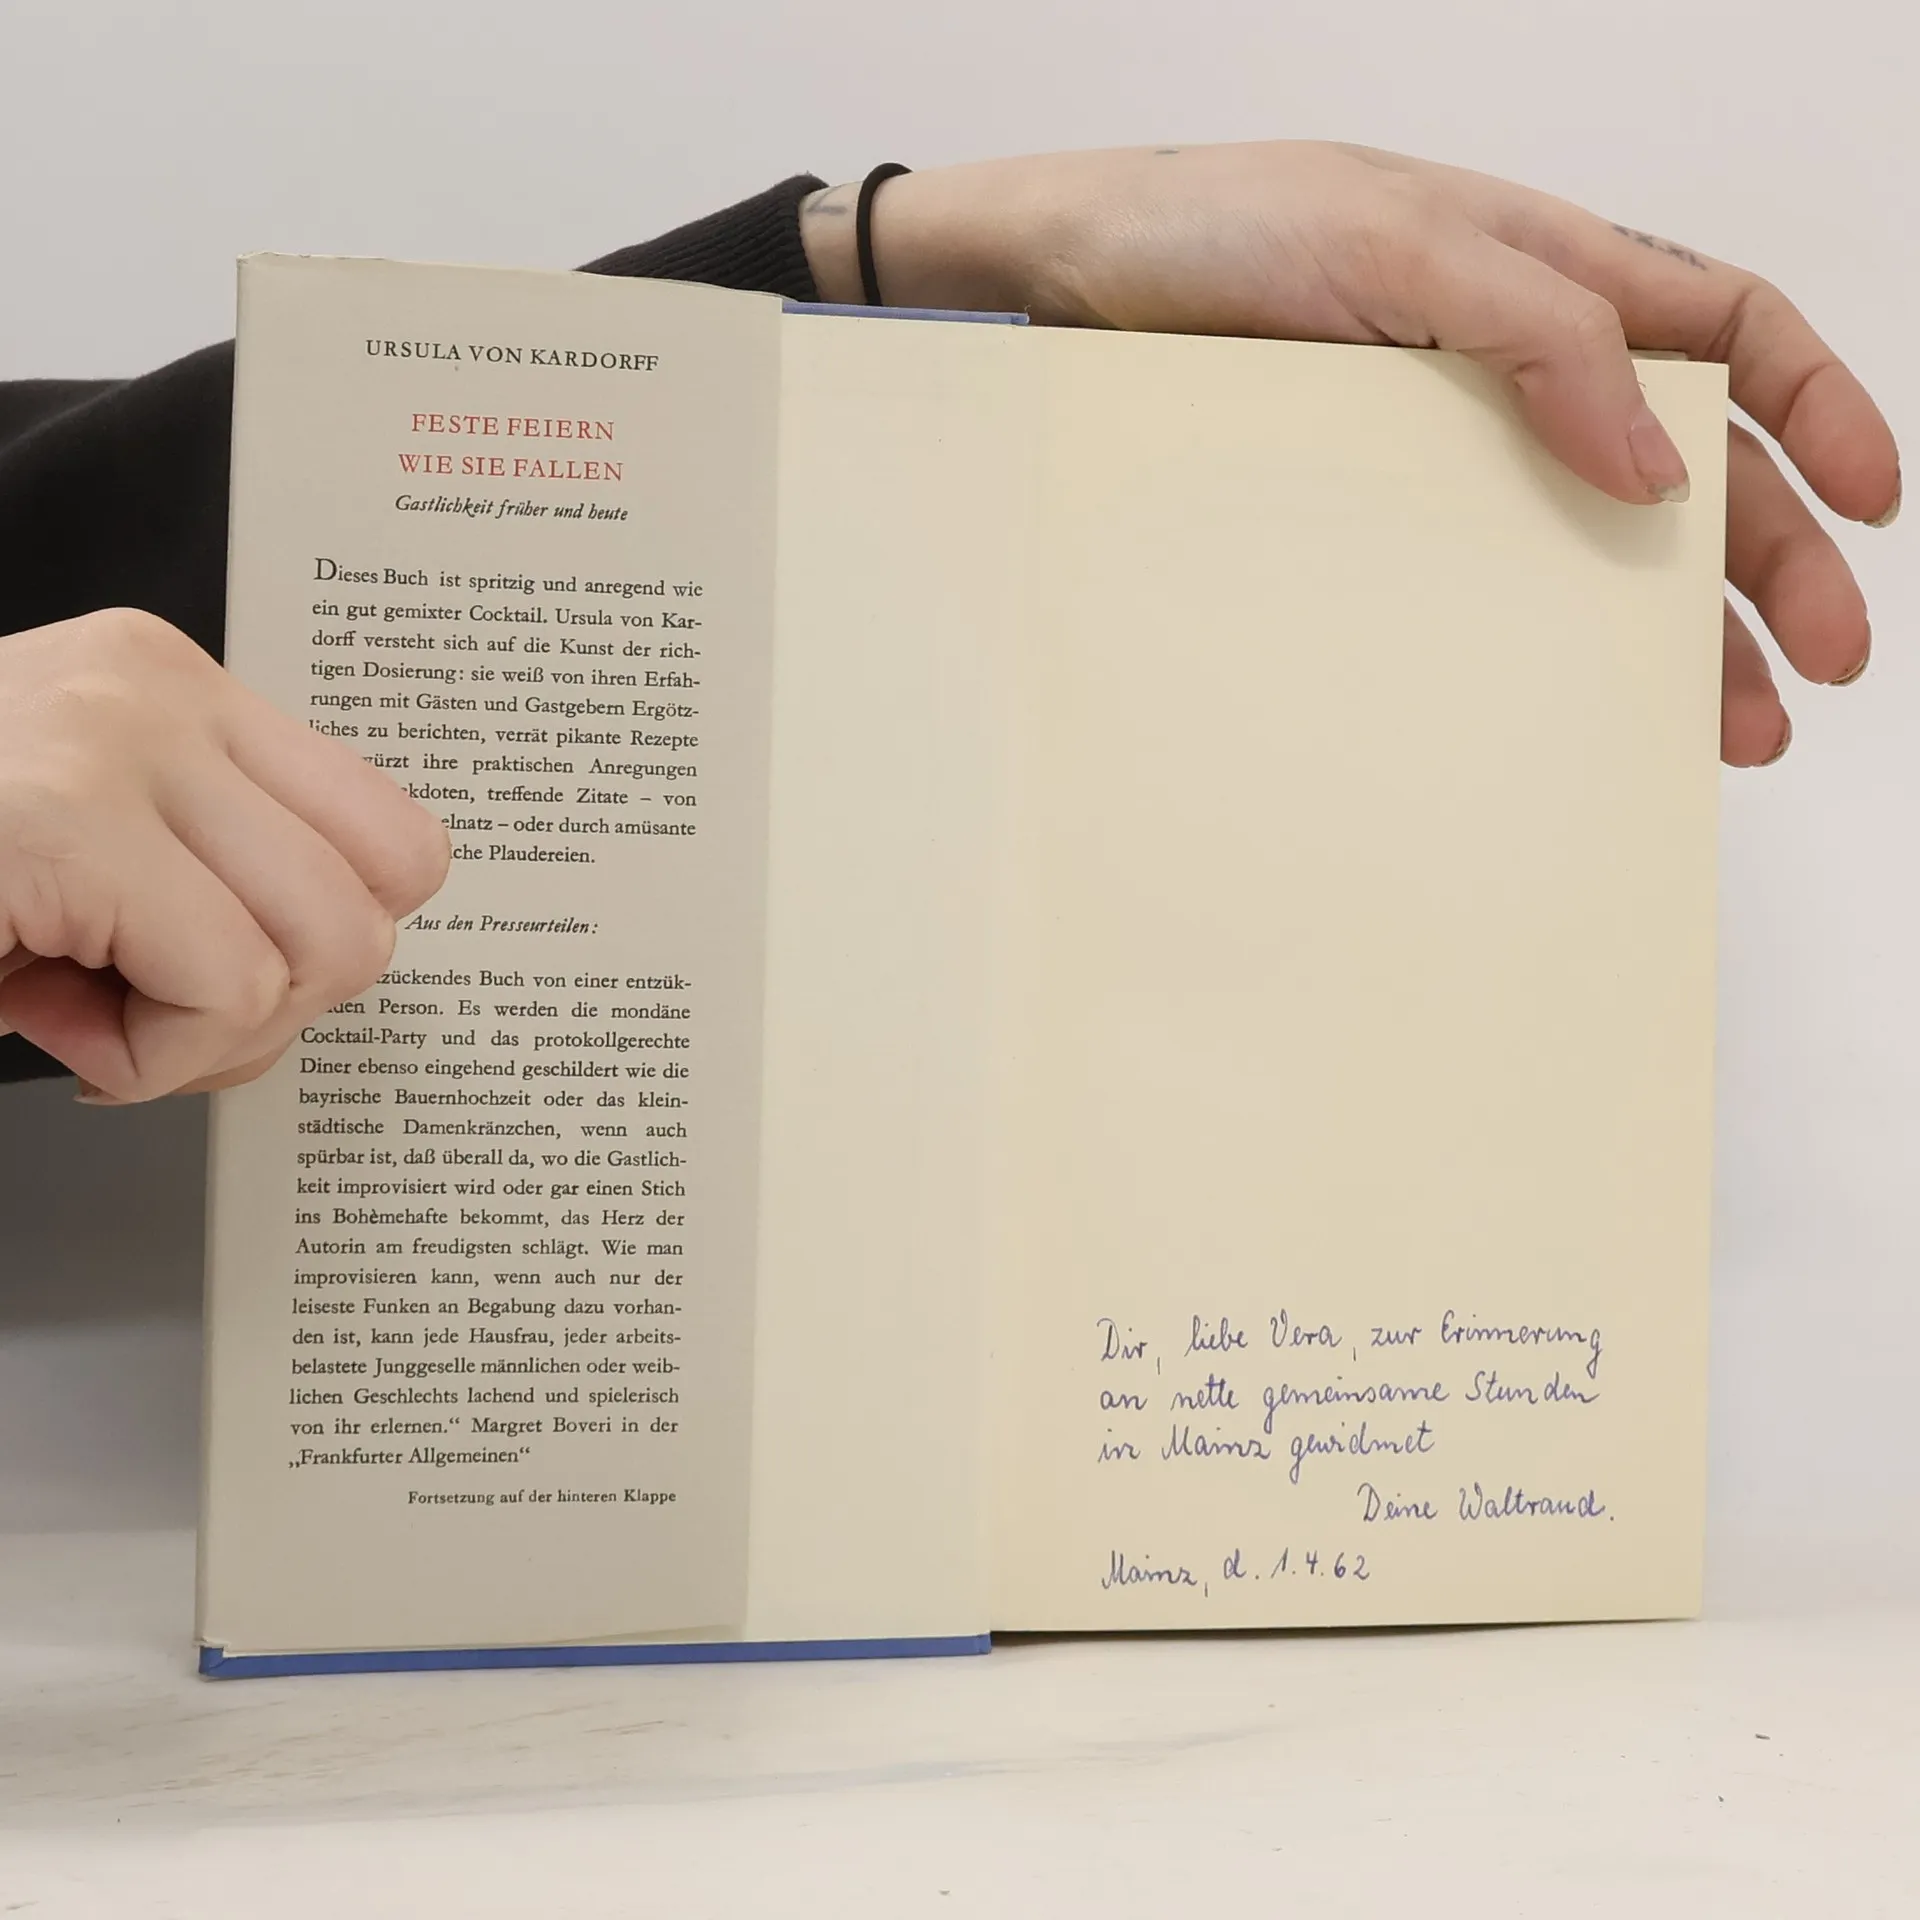 URSULA VON KARDORFF
FESTE FEIERN
WIE SIE FALLEN
Gastlichkeit früher und heute
Dieses Buch ist spritzig und anregend wie
ein gut gemixter Cocktail. Ursula von Kar-
dorff versteht sich auf die Kunst der rich-
tigen Dosierung: sie weiß von ihren Erfah-
rungen mit Gästen und Gastgebern Ergötz-
liches zu berichten, verrät pikante Rezepte
ihre praktischen Anregungen
treffende Zitate – von
– oder durch amüsante
Plaudereien.
Aus den Presseurteilen:
Buch von einer entzük-
Person. Es werden die mondäne
Cocktail-Party und das protokollgerechte
Diner ebenso eingehend geschildert wie die
bayrische Bauernhochzeit oder das klein-
städtische Damenkränzchen, wenn auch
spürbar ist, daß überall da, wo die Gastlich-
keit improvisiert wird oder gar einen Stich
ins Bohèmehafte bekommt, das Herz der
Autorin am freudigsten schlägt. Wie man
improvisieren kann, wenn auch nur der
leiseste Funken an Begabung dazu vorhan-
den ist, kann jede Hausfrau, jeder arbeits-
belastete Junggeselle männlichen oder weib-
lichen Geschlechts lachend und spielerisch
von ihr erlernen.“ Margret Boveri in der
„Frankfurter Allgemeinen“
Fortsetzung auf der hinteren Klappe
Dir, liebe Vera, zur Erinnerung
an nette gemeinsame Stunden
in Mainz gewidmet
Deine Waltraud.
Mainz, d. 1.4.62